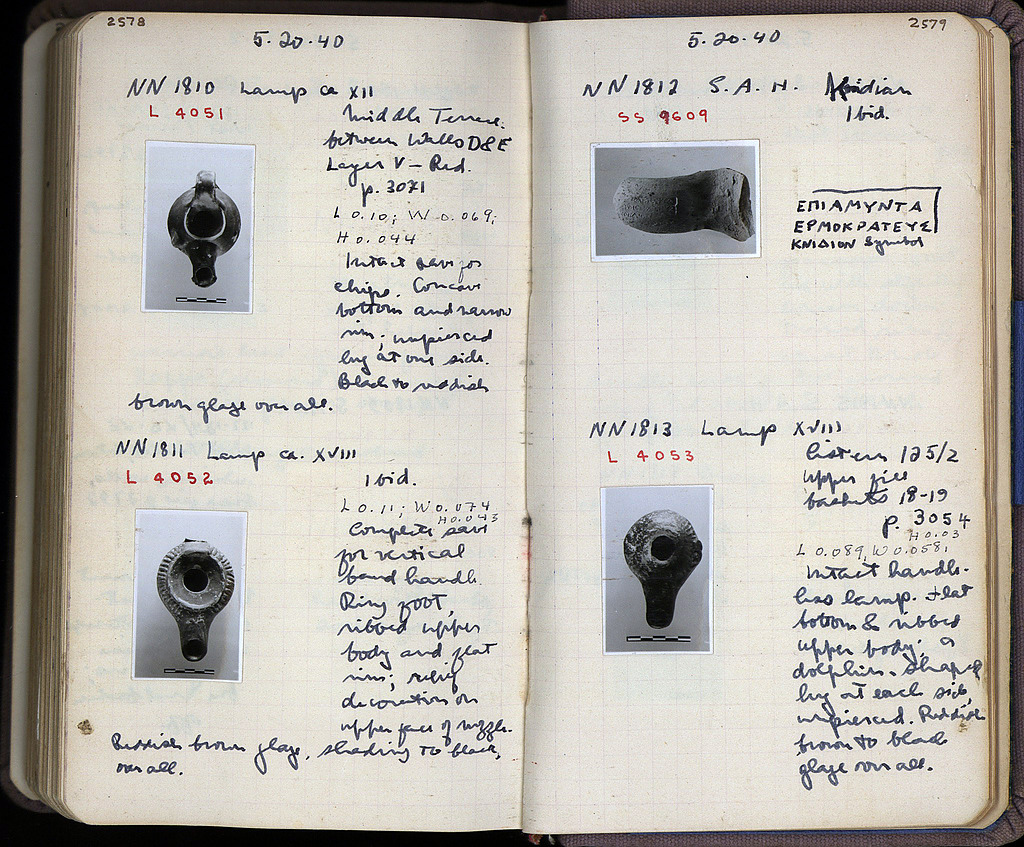 2578
5.20.40
NN 1810 Lamp ca XII
L 4051
Middle Terrace.
between Walls D & E
Layer V – Red.
p. 3071
L 0.10; W 0.069;
H 0.044
Intact save for
chips. Concave
bottom and narrow
rim; unpierced
lug at one side.
Black to reddish
brown glaze over all.
NN 1811 Lamp ca. XVIII
L 4052
Ibid.
L 0.11; W 0.074
H 0.043
Complete save
for vertical
band handle.
Ring foot,
ribbed upper
body and flat
rim; relief
decoration on
upper face of nozzle.
Reddish brown glaze, shading to black,
over all.
2579
5.20.40
NN 1812 S.A.H. Knidian
SS 9609
Ibid.
ΕΠΙΑΜΥΝΤΑ
ΕΡΜΟΚΡΑΤΕΥΣ
ΚΝΙΔΙΟΝ Symbol
NN 1813 Lamp XVIII
L 4053
Cistern 125/2
upper fill
baskets 18-19
p. 3054
H 0.03
L 0.089, W 0.058;
Intact handle-
less lamp. Flat
bottom & ribbed
upper body; a
dolphin-shaped
lug at each side,
unpierced. Reddish
brown to black
glaze over all.